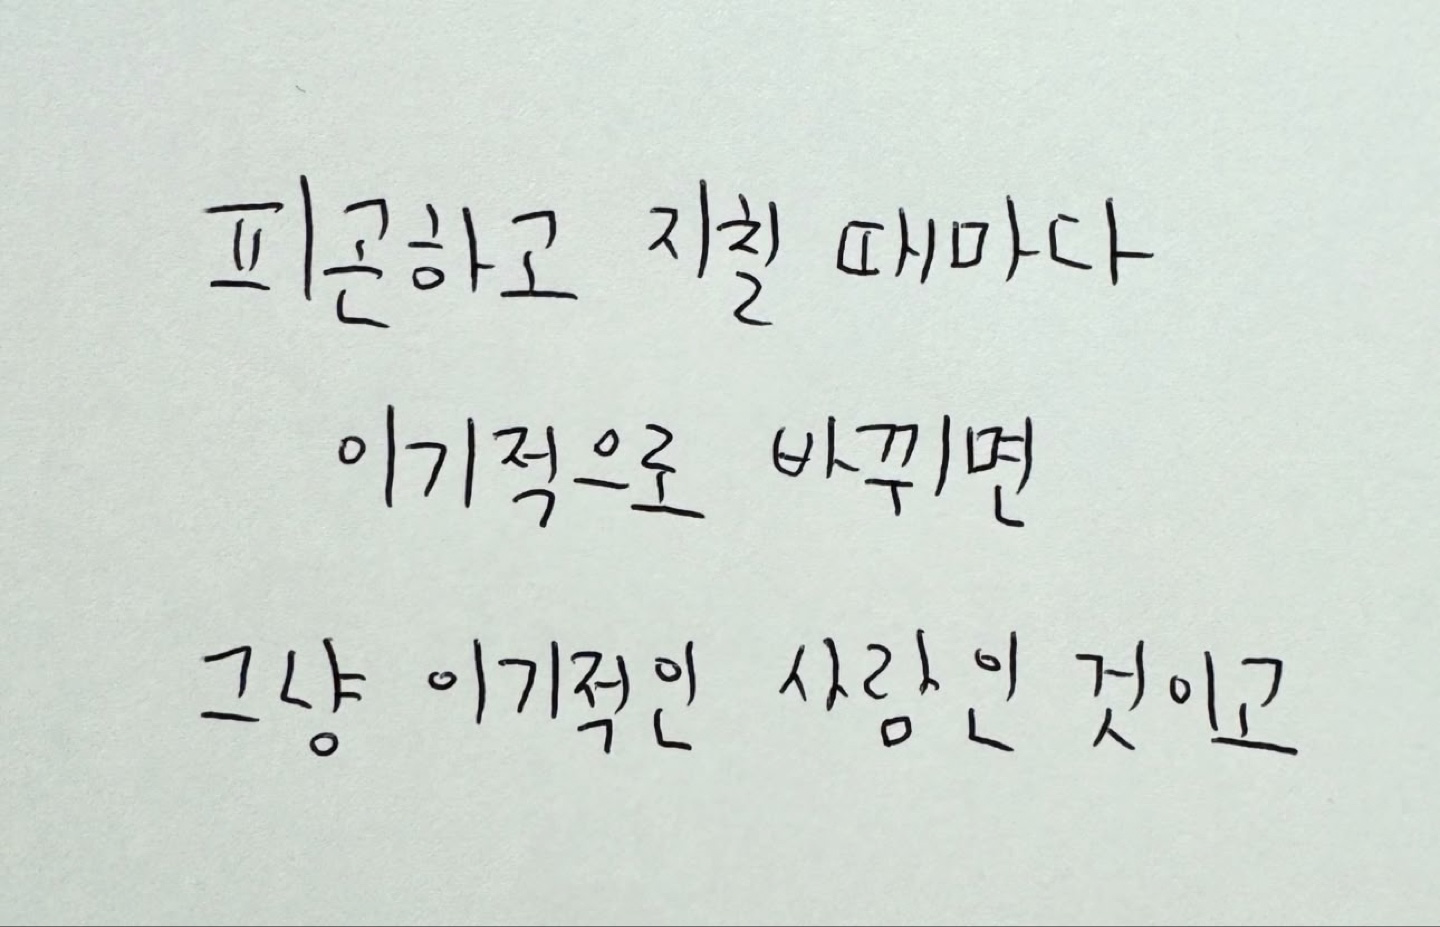 피곤하고 지칠 때마다
이기적으로 바뀌면
그냥 이기적인 사람인 것이고